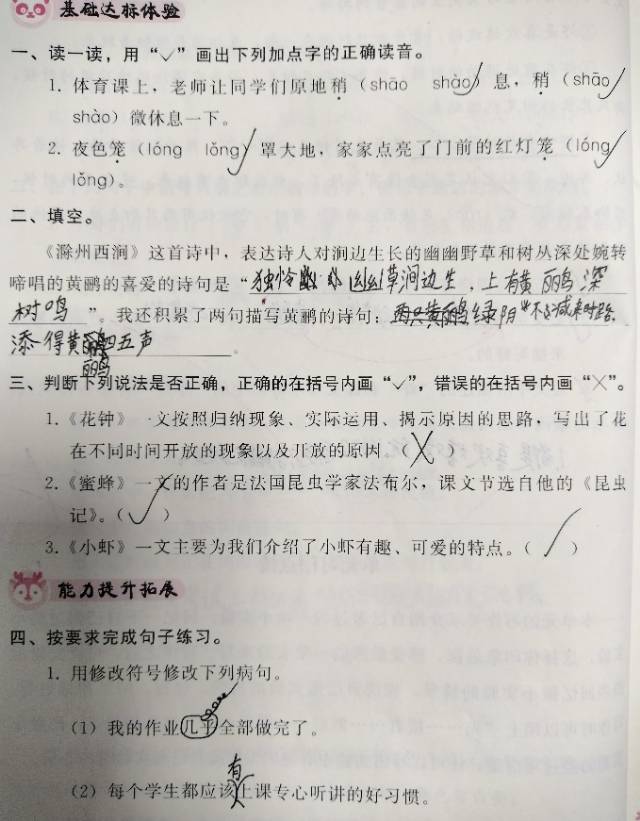 基础达标体验
一、读一读，用“√”画出下列加点字的正确读音。
1. 体育课上，老师让同学们原地稍（shāo shào√）息，稍（shāo√
shào）微休息一下。
2. 夜色笼（lóng lǒng√）罩大地，家家点亮了门前的红灯笼（lóng√
lǒng）。
二、填空。
《滁州西涧》这首诗中，表达诗人对涧边生长的幽幽野草和树丛深处婉转
啼唱的黄鹂的喜爱的诗句是“独怜幽草涧边生，上有黄鹂深
树鸣”。我还积累了两句描写黄鹂的诗句：绿阴不减来时路
添得黄鹂四五声。
三、判断下列说法是否正确，正确的在括号内画“√”，错误的在括号内画“×”。
1.《花钟》一文按照归纳现象、实际运用、揭示原因的思路，写出了花
在不同时间开放的现象以及开放的原因（×）
2.《蜜蜂》一文的作者是法国昆虫学家法布尔，课文节选自他的《昆虫
记》。（√）
3.《小虾》一文主要为我们介绍了小虾有趣、可爱的特点。（√）
能力提升拓展
四、按要求完成句子练习。
1. 用修改符号修改下列病句。
（1）我的作业几乎全部做完了。
有
（2）每个学生都应该上课专心听讲的好习惯。